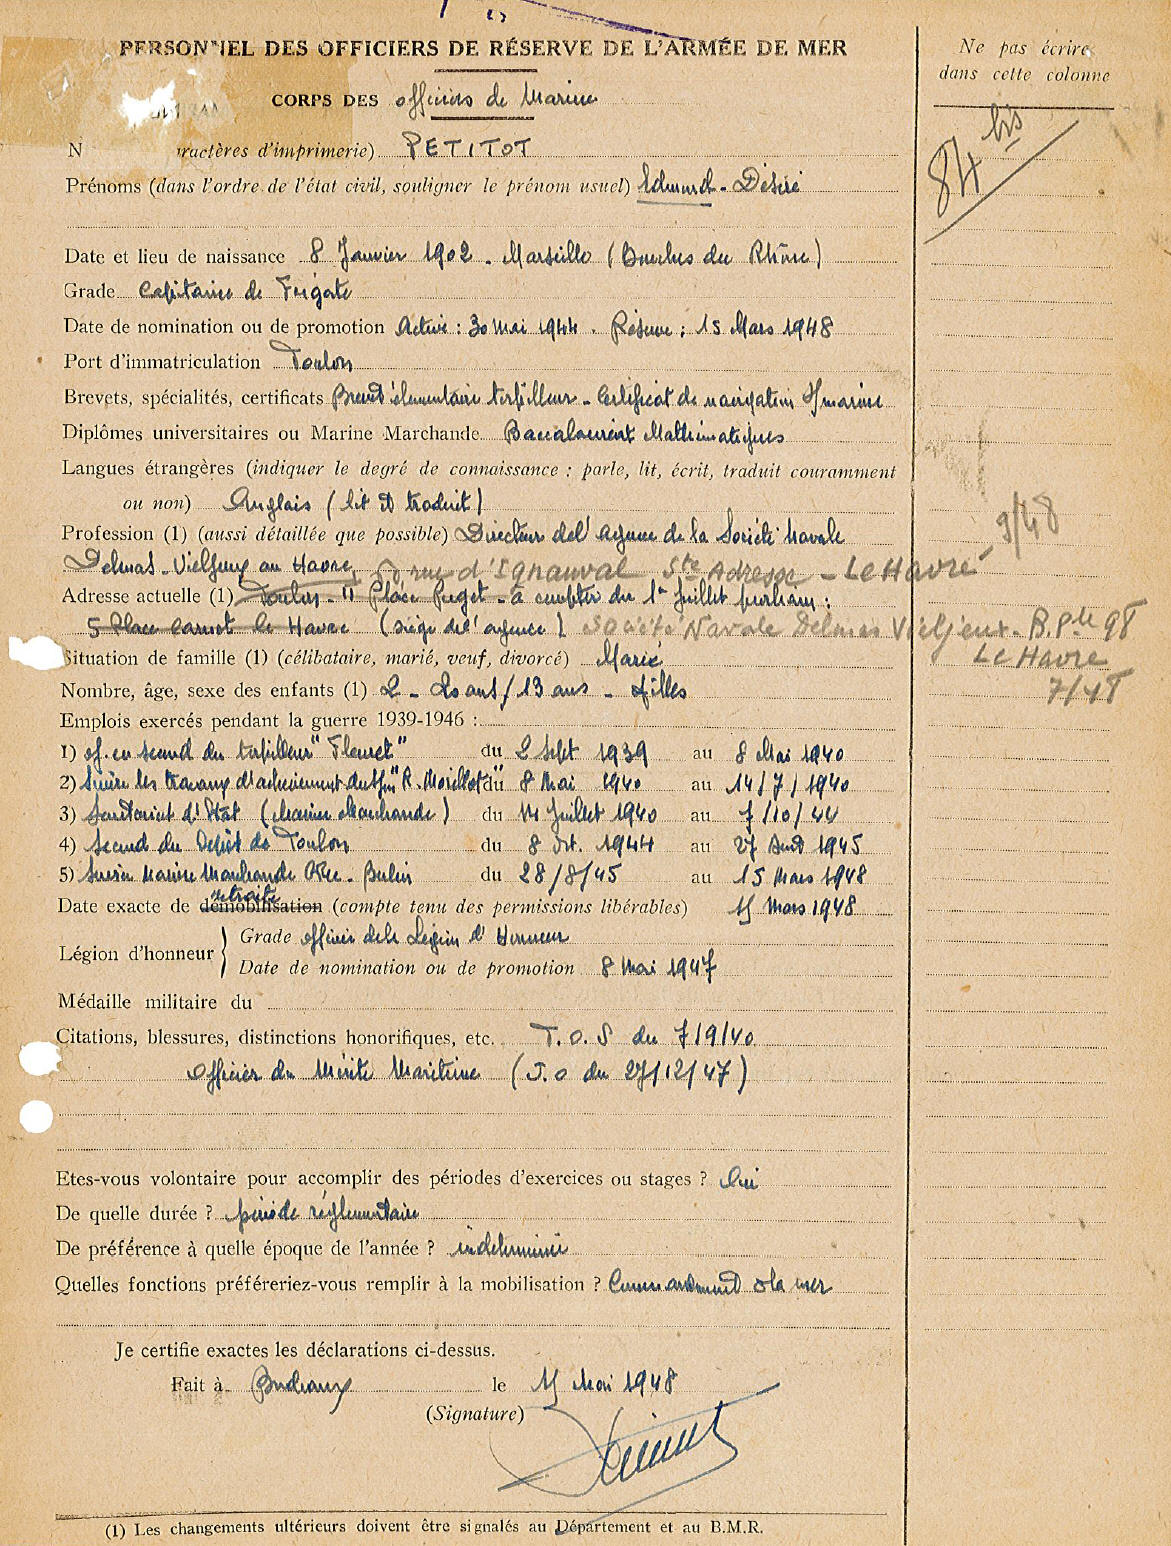 PERSONNEL DES OFFICIERS DE RÉSERVE DE L'ARMÉE DE MER
Ne pas écrire
dans cette colonne
CORPS DES officiers de Marine
84 bis
N ractères d'imprimerie) PETITOT
Prénoms (dans l'ordre de l'état civil, souligner le prénom usuel) Edmond - Désiré
Date et lieu de naissance 8 Janvier 1902 - Marseille (Bouches du Rhône)
Grade Capitaine de Frégate
Date de nomination ou de promotion Active : 30 Mai 1944 - Réserve : 15 Mars 1948
Port d'immatriculation Toulon
Brevets, spécialités, certificats Brevet élémentaire torpilleur - Certificat de navigation S/marine
Diplômes universitaires ou Marine Marchande Baccalauréat Mathématiques
Langues étrangères (indiquer le degré de connaissance : parle, lit, écrit, traduit couramment
ou non) Anglais (lit et traduit)
9/48
Profession (1) (aussi détaillée que possible) Directeur de l'agence de la Société Navale
Delmas-Vieljeux au Havre, rue d'Ignauval Ste Adresse - Le Havre
Adresse actuelle (1) Toulon - 11 Place Puget - à compter du 1er Juillet prochain :
5 Place Carnot Le Havre (siège de l'agence) Société Navale Delmas Vieljeux - B.Ple 98
Le Havre
7/48
Situation de famille (1) (célibataire, marié, veuf, divorcé) Marié
Nombre, âge, sexe des enfants (1) 2 - 20 ans / 13 ans - filles
Emplois exercés pendant la guerre 1939-1946 :
1) of. en second du torpilleur "Fleuret" du 2 Sept 1939 au 8 Mai 1940
2) Suivre les travaux d'achèvement du S/m "R. Morillot" du 8 Mai 1940 au 14/7/1940
3) Secrétariat d'Etat (Marine Marchande) du 14 Juillet 1940 au 7/10/44
4) Second du Dépôt de Toulon du 8 Oct. 1944 au 27 Août 1945
5) Marine Marchande - Berlin du 28/8/45 au 15 Mars 1948
retraite
Date exacte de démobilisation (compte tenu des permissions libérables) 15 Mars 1948
Légion d'honneur Grade officier de la Légion d'Honneur
Date de nomination ou de promotion 8 Mai 1947
Médaille militaire du
Citations, blessures, distinctions honorifiques, etc. T.O.S du 7/9/40
Officier du Mérite Maritime (J.O du 27/12/47)
Etes-vous volontaire pour accomplir des périodes d'exercices ou stages ? Oui
De quelle durée ? période réglementaire
De préférence à quelle époque de l'année ? indéterminée
Quelles fonctions préféreriez-vous remplir à la mobilisation ? Commandement à la mer
Je certifie exactes les déclarations ci-dessus.
Fait à Bordeaux le 15 Mai 1948
(Signature)
(1) Les changements ultérieurs doivent être signalés au Département et au B.M.R.